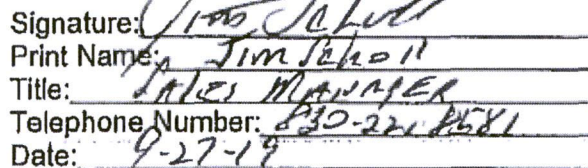 Signature: Jim Scholl
Print Name: Jim Scholl
Title: SALES MANAGER
Telephone Number: 830-221-8581
Date: 9-27-19